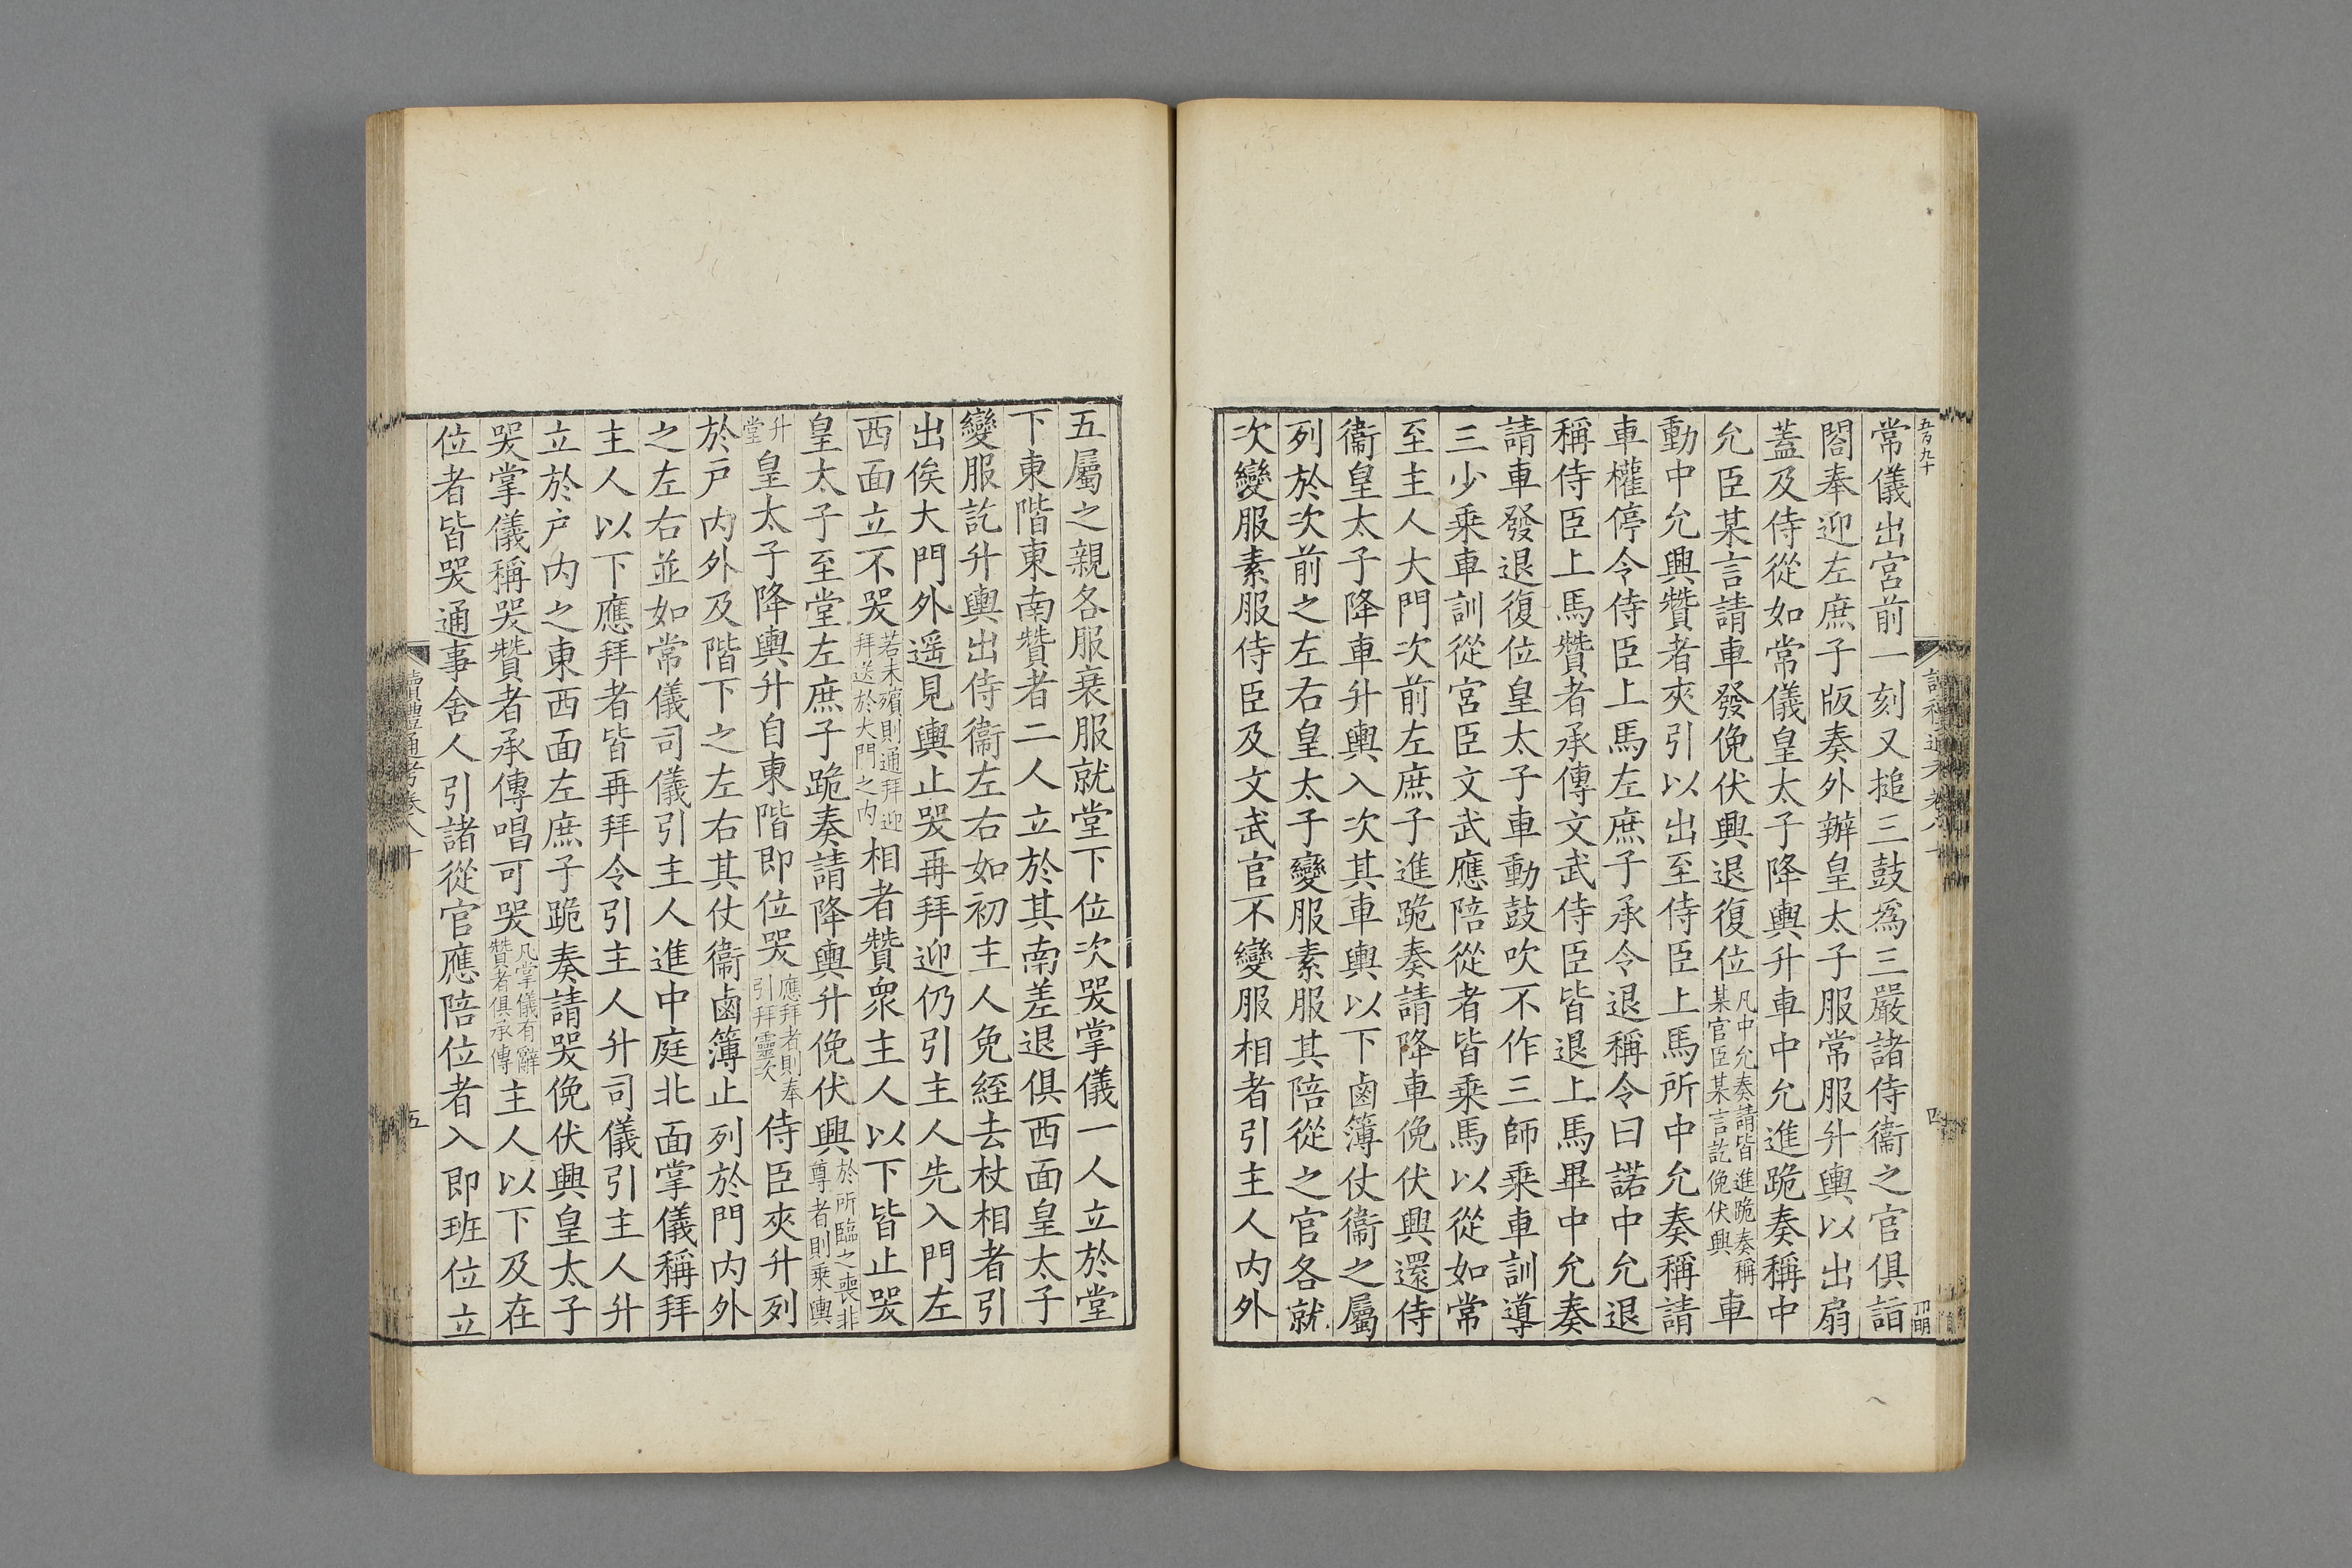 五百九十
常儀出宮前一刻又搥三鼓爲三嚴諸侍衞之官俱詣
閤奉迎左庶子版奏外辦皇太子服常服升輿以出扇
蓋及侍從如常儀皇太子降輿升車中允進跪奏稱中
允臣某言請車發俛伏興退復位凡中允奏請皆進跪奏稱某官臣某言訖俛伏興車
動中允興贊者夾引以出至侍臣上馬所中允奏稱請
車權停令侍臣上馬左庶子承令退稱令曰諾中允退
稱侍臣上馬贊者承傳文武侍臣皆退上馬畢中允奏
請車發退復位皇太子車動鼓吹不作三師乘車訓導
三少乘車訓從宮臣文武應陪從者皆乘馬以從如常
至主人大門次前左庶子進跪奏請降車俛伏興還侍
衞皇太子降車升輿入次其車輿以下鹵簿仗衞之屬
列於次前之左右皇太子變服素服其陪從之官各就
次變服素服侍臣及文武官不變服相者引主人內外
五屬之親各服衰服就堂下位次哭掌儀一人立於堂
下東階東南贊者二人立於其南差退俱西面皇太子
變服訖升輿出侍衞左右如初主人免絰去杖相者引
出俟大門外遥見輿止哭再拜迎仍引主人先入門左
西面立不哭若未殯則通拜迎拜送於大門之內相者贊衆主人以下皆止哭
皇太子至堂左庶子跪奏請降輿升俛伏興於所臨之喪非尊者則乘輿
升堂皇太子降輿升自東階即位哭應拜者則奉引拜靈次侍臣夾升列
於戸內外及階下之左右其仗衞鹵簿止列於門內外
之左右並如常儀司儀引主人進中庭北面掌儀稱拜
主人以下應拜者皆再拜令引主人升司儀引主人升
立於戸內之東西面左庶子跪奏請哭俛伏興皇太子
哭掌儀稱哭贊者承傳唱可哭凡掌儀有辭贊者俱承傳主人以下及在
位者皆哭通事舍人引諸從官應陪位者入即班位立
讀禮通考卷八十
五